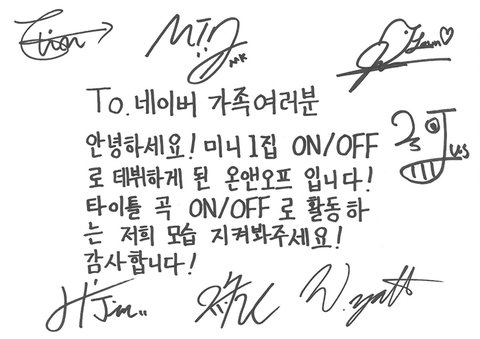 To. 네이버 가족여러분
안녕하세요! 미니1집 ON/OFF
로 데뷔하게 된 온앤오프 입니다!
타이틀 곡 ON/OFF 로 활동하
는 저희 모습 지켜봐주세요!
감사합니다!
W.yatt